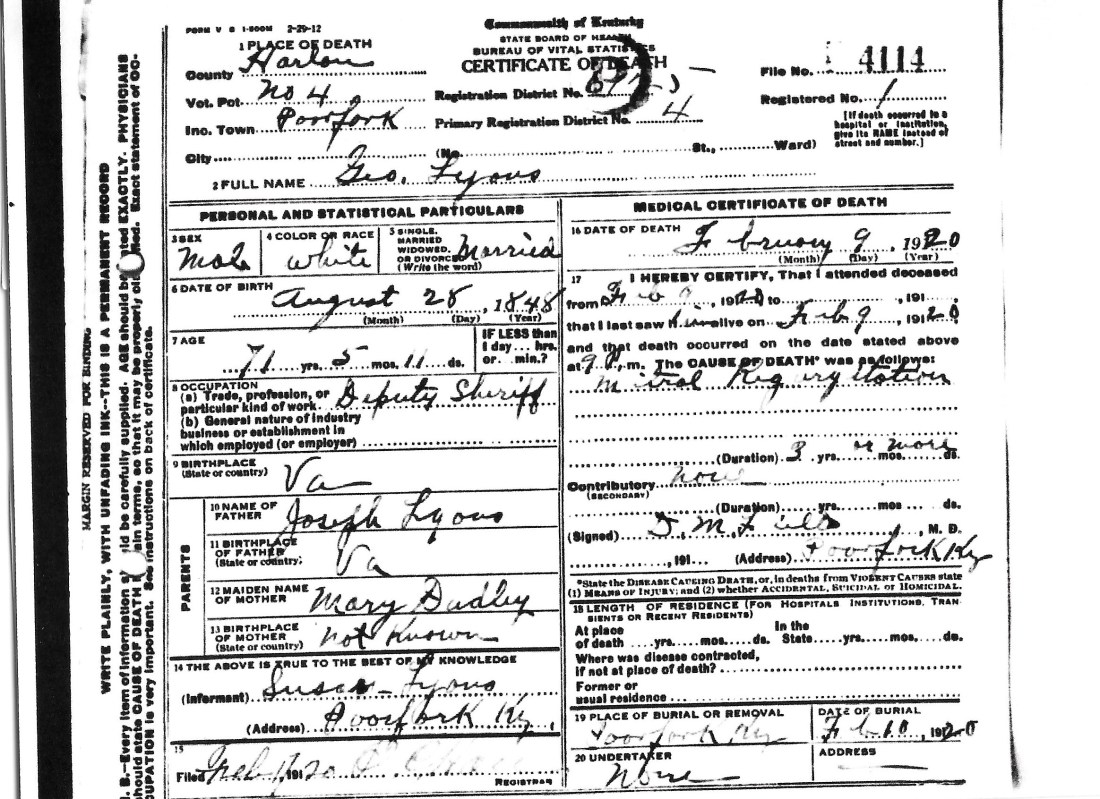 FORM V S 1-500M 2-29-12
Commonwealth of Kentucky
STATE BOARD OF HEALTH
BUREAU OF VITAL STATISTICS
CERTIFICATE OF DEATH
1 PLACE OF DEATH
County Harlan
Vot. Pct. No 4
Inc. Town Poorfork
City
Registration District No.
Primary Registration District No. 4
File No. 4114
Registered No. 1
[If death occurred in a
hospital or institution,
give its NAME instead of
street and number.]
(No. St., Ward)
2 FULL NAME Geo. Lyons
PERSONAL AND STATISTICAL PARTICULARS
3 SEX
Male
4 COLOR OR RACE
White
5 SINGLE,
MARRIED
WIDOWED,
OR DIVORCED
(Write the word)
Married
6 DATE OF BIRTH
August 28, 1848
(Month) (Day) (Year)
7 AGE
71 yrs. 5 mos. 11 ds.
IF LESS than
1 day... hrs.
or... min.?
8 OCCUPATION
(a) Trade, profession, or
particular kind of work Deputy Sheriff
(b) General nature of industry
business or establishment in
which employed (or employer)
9 BIRTHPLACE
(State or country)
Va
PARENTS
10 NAME OF
FATHER
Joseph Lyons
11 BIRTHPLACE
OF FATHER
(State or country)
Va
12 MAIDEN NAME
OF MOTHER
Mary Dudley
13 BIRTHPLACE
OF MOTHER
(State or country)
Not Known
14 THE ABOVE IS TRUE TO THE BEST OF MY KNOWLEDGE
(Informant) Susan Lyons
(Address) Poorfork Ky.
15
Filed 191 20
REGISTRAR
MEDICAL CERTIFICATE OF DEATH
16 DATE OF DEATH
February 9, 1920
(Month) (Day) (Year)
17 I HEREBY CERTIFY, That I attended deceased
from Feb 9, 1920 to , 191
that I last saw him alive on Feb 9, 1920
and that death occurred on the date stated above
at 9 P.m. The CAUSE OF DEATH* was as follows:
Mitral Regurgitation
(Duration) 3 yrs. or more mos. ds.
Contributory None
(SECONDARY)
(Duration) yrs. mos. ds.
(Signed) D. M. Fields, M. D.
, 191 (Address) Poorfork Ky
*State the DISEASE CAUSING DEATH, or, in deaths from VIOLENT CAUSES state
(1) MEANS OF INJURY; and (2) whether ACCIDENTAL, SUICIDAL or HOMICIDAL.
18 LENGTH OF RESIDENCE (FOR HOSPITALS INSTITUTIONS, TRAN-
SIENTS OR RECENT RESIDENTS)
At place In the
of death yrs. mos. ds. State yrs. mos. ds.
Where was disease contracted,
if not at place of death?
Former or
usual residence
19 PLACE OF BURIAL OR REMOVAL
Poorfork Ky
DATE OF BURIAL
Feb 10, 1920
20 UNDERTAKER
None
ADDRESS
MARGIN RESERVED FOR BINDING
WRITE PLAINLY, WITH UNFADING INK--THIS IS A PERMANENT RECORD
N. B.—Every item of information should be carefully supplied. AGE should be stated EXACTLY. PHYSICIANS
should state CAUSE OF DEATH in plain terms, so that it may be properly classified. Exact statement of OC-
CUPATION is very important. See instructions on back of certificate.